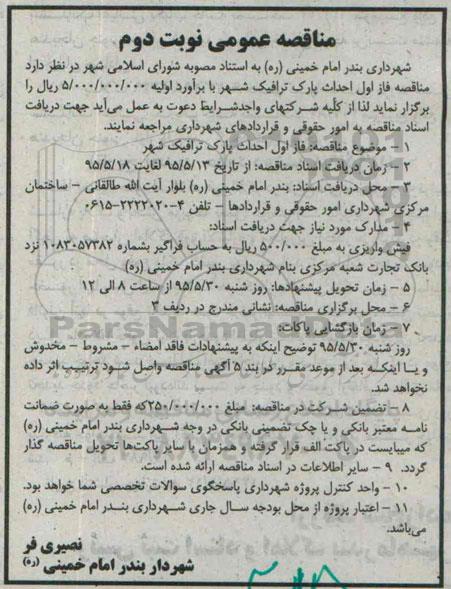 مناقصه عمومی نوبت دوم
شهرداری بندر امام خمینی (ره) به استناد مصوبه شورای اسلامی شهر در نظر دارد
مناقصه فاز اول احداث پارک ترافیک شهر با برآورد اولیه ۵/۰۰۰/۰۰۰/۰۰۰ ریال را
برگزار نماید لذا از کلّیه شرکتهای واجدشرایط دعوت به عمل می‌آید جهت دریافت
اسناد مناقصه به امور حقوقی و قراردادهای شهرداری مراجعه نمایند.
۱ – موضوع مناقصه: فاز اول احداث پارک ترافیک شهر
۲ – زمان دریافت اسناد مناقصه: از تاریخ ۹۵/۵/۱۳ لغایت ۹۵/۵/۱۸
۳ – محل دریافت اسناد: بندر امام خمینی (ره) بلوار آیت الله طالقانی – ساختمان
مرکزی شهرداری امور حقوقی و قراردادها – تلفن ۴-۲۲۲۲۰۲۰۰-۰۶۱۵
۴ – مدارک مورد نیاز جهت دریافت اسناد:
فیش واریزی به مبلغ ۵۰۰/۰۰۰ ریال به حساب فراگیر بشماره ۱۰۸۳۰۵۷۳۸۲ نزد
بانک تجارت شعبه مرکزی بنام شهرداری بندر امام خمینی (ره)
۵ – زمان تحویل پیشنهادها: روز شنبه ۹۵/۵/۳۰ از ساعت ۸ الی ۱۲
۶ – محل برگزاری مناقصه: نشانی مندرج در ردیف ۳
۷ – زمان بازگشایی پاکات:
روز شنبه ۹۵/۵/۳۰ توضیح اینکه به پیشنهادات فاقد امضاء – مشروط – مخدوش
و یا اینکه بعد از موعد مقرر در بند ۵ آگهی مناقصه واصل شود ترتیبپ اثر داده
نخواهد شد.
۸ – تضمین شرکت در مناقصه: مبلغ ۲۵۰/۰۰۰/۰۰۰که فقط به صورت ضمانت
نامه معتبر بانکی و یا چک تضمینی بانکی در وجه شهرداری بندر امام خمینی (ره)
که میبایست در پاکت الف قرار گرفته و همزمان با سایر پاکت‌ها تحویل مناقصه گذار
گردد. ۹ – سایر اطلاعات در اسناد مناقصه ارائه شده است.
۱۰ – واحد کنترل پروژه شهرداری پاسخگوی سوالات تخصصی شما خواهد بود.
۱۱ – اعتبار پروژه از محل بودجه سال جاری شهرداری بندر امام خمینی (ره)
می‌باشد.
نصیری فر
شهردار بندر امام خمینی (ره)